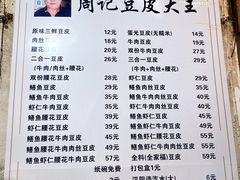 周记豆皮大王
原味三鲜豆皮 12元
蛋光豆皮(无糯米) 14元
肉丝豆皮 19元
牛肉豆皮 19元
腰花豆皮
双份牛肉豆皮 29元
二合一豆皮 26元
三合一豆皮 29元
(牛肉/肉丝+腰花)
(牛肉+肉丝+腰花)
双份腰花豆皮
虾仁豆皮 28元
鳝鱼豆皮
鳝鱼肉丝豆皮 35元
虾仁肉丝豆皮 35元
鳝鱼牛肉豆皮 35元
虾仁牛肉豆皮 35元
鳝鱼腰花豆皮
虾仁腰花豆皮
鳝鱼牛肉肉丝豆皮
虾仁牛肉肉丝豆皮
鳝鱼腰花肉丝豆皮 45元
虾仁腰花肉丝豆皮 45元
鳝鱼腰花牛肉豆皮 45元
虾仁腰花牛肉豆皮 45元
鳝鱼虾仁豆皮
全料(全家福)豆皮 59元
鳝鱼虾仁腰花豆皮 57元
打包盒1元
纸碗免费